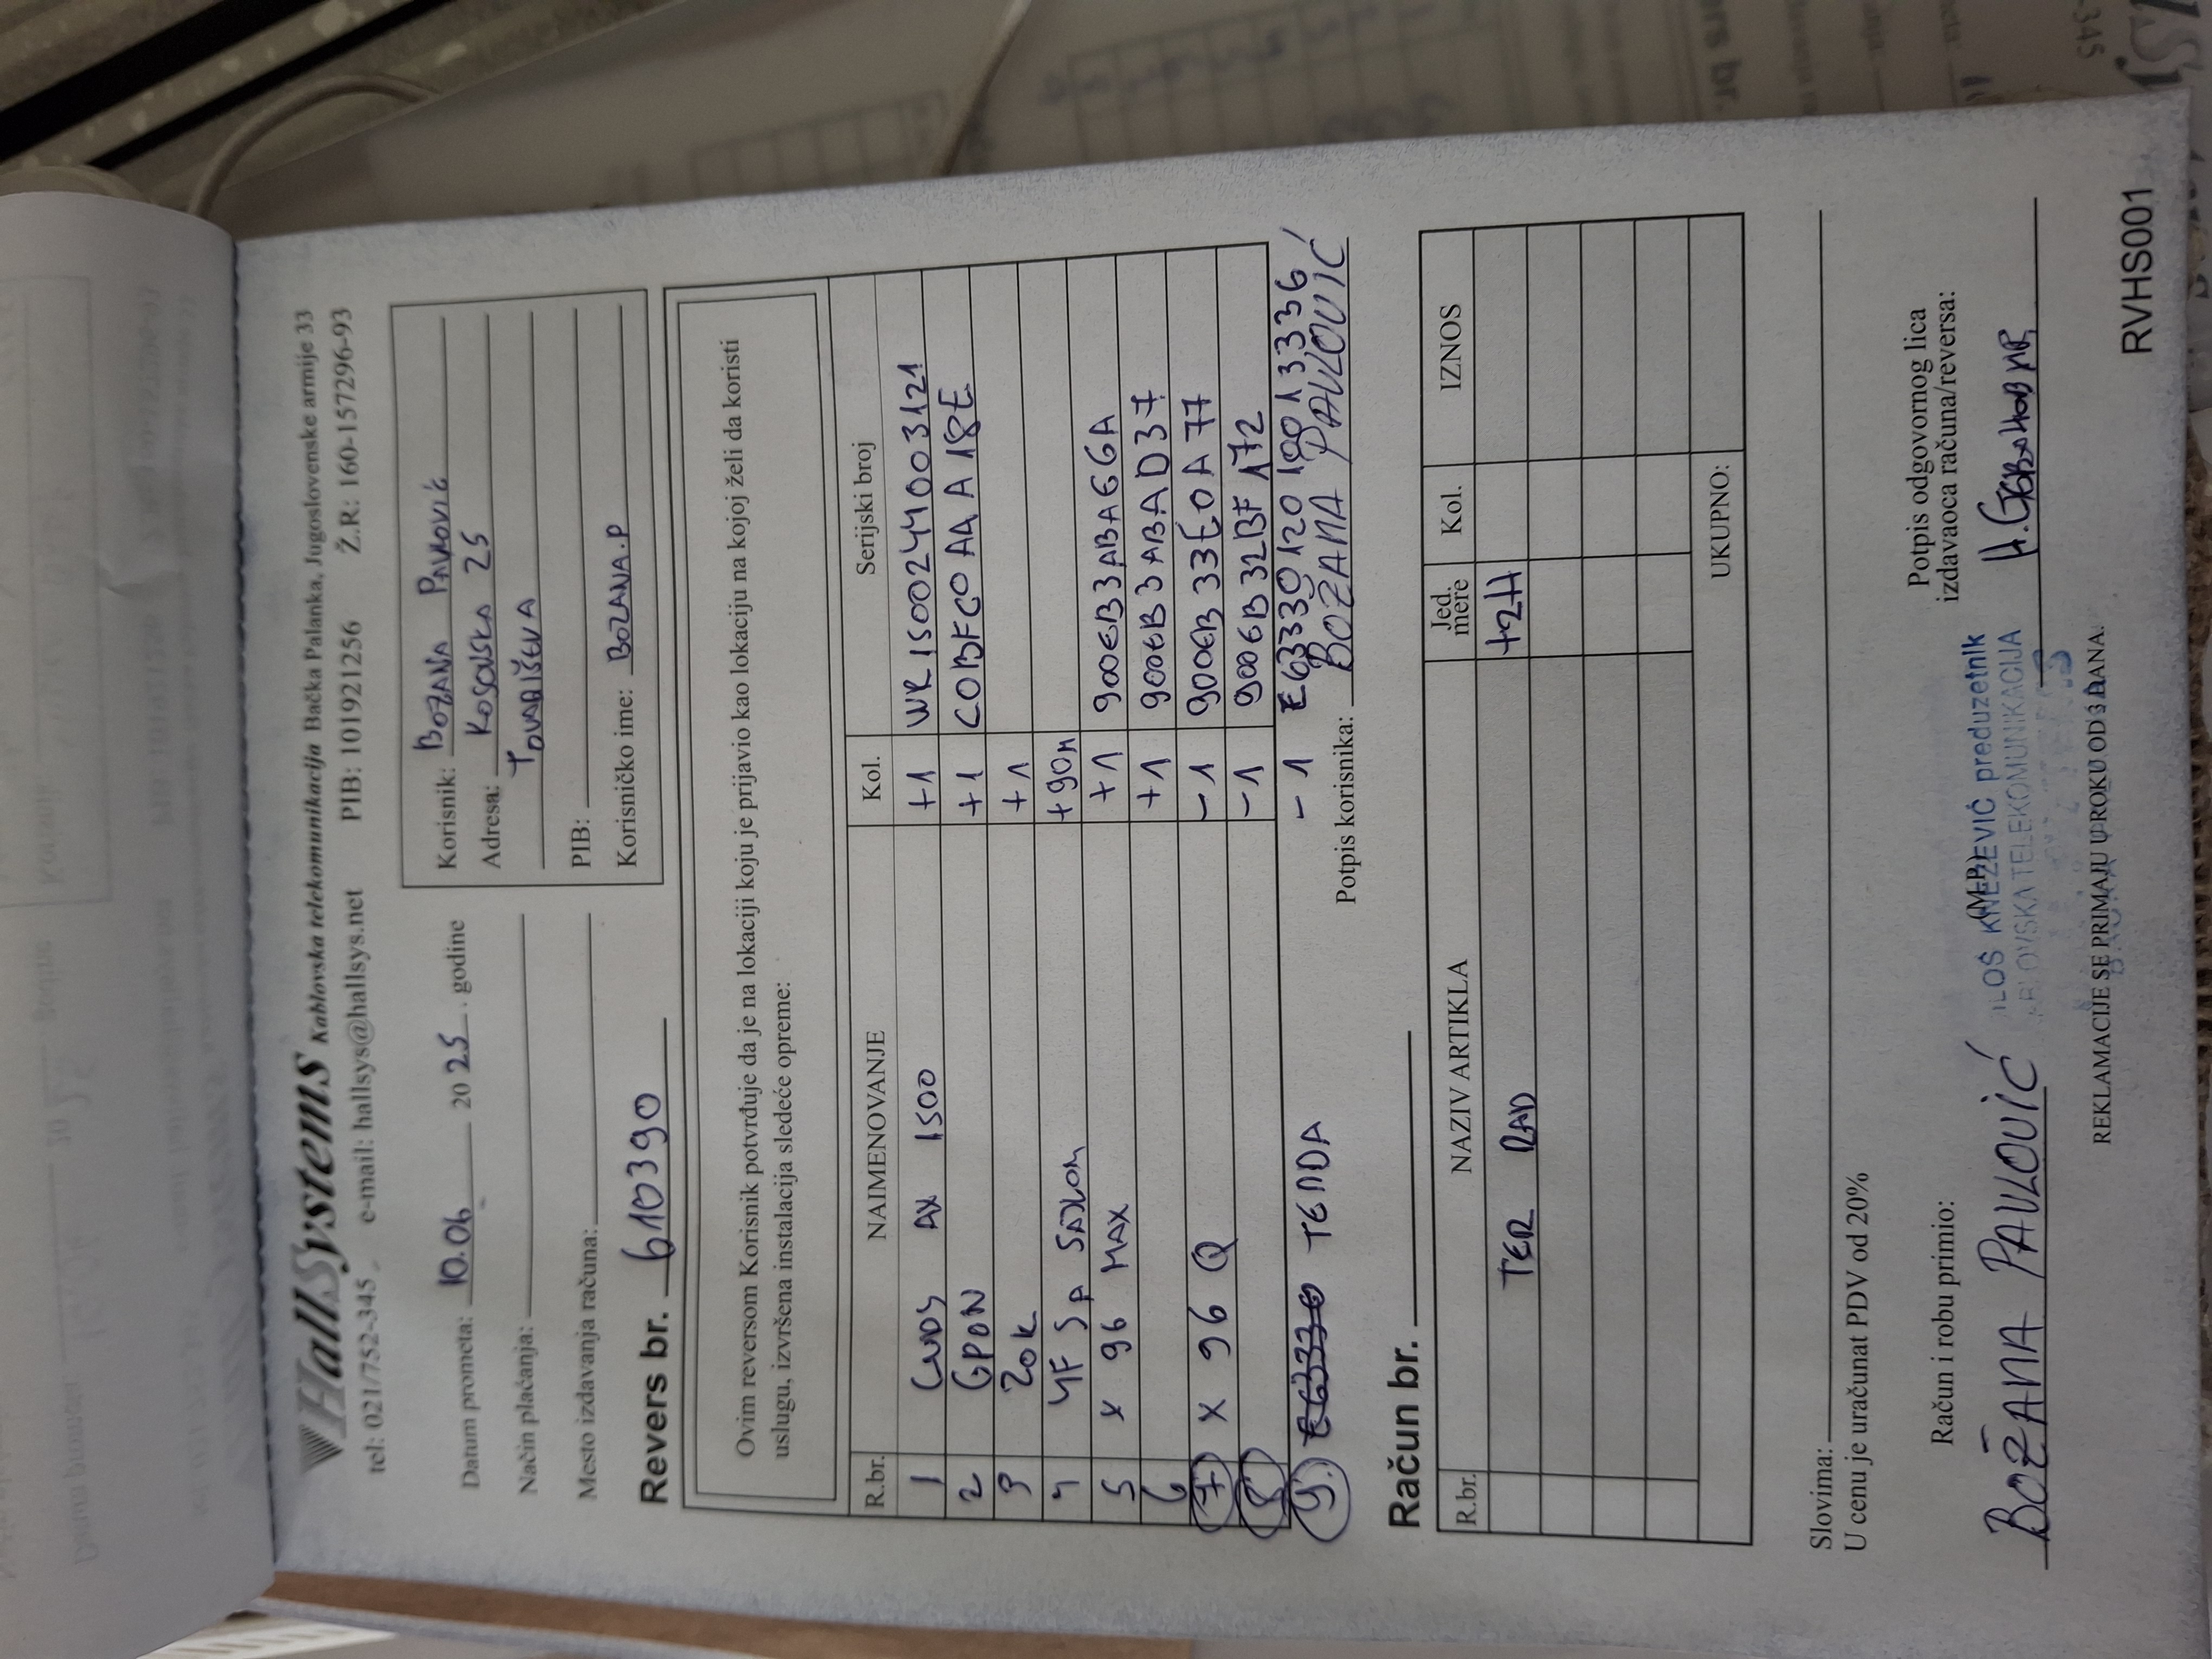 HallSystems Kablovska telekomunikacija Bačka Palanka, Jugoslovenske armije 33
tel: 021/752-345 e-mail: hallsys@hallsys.net PIB: 101921256 Ž.R.: 160-157296-93
Datum prometa: 10.06 2025. godine
Način plaćanja:
Mesto izdavanja računa:
Korisnik: BOZANA PAVLOVIĆ
Adresa: KOSOVSKA 25
TOVARIŠEVA
PIB:
Korisničko ime: BOZANA.P
Revers br. 610390
Ovim reversom Korisnik potvrđuje da je na lokaciji koju je prijavio kao lokaciju na kojoj želi da koristi
uslugu, izvršena instalacija sledeće opreme:
R.br. NAIMENOVANJE Kol. Serijski broj
1 CUDY AX 1500 +1 WR1500244003121
2 GPON +1 C0BFC0AAA18E
3 ZOK +1
4 4F SA +90m
5 X 96 MAX +1 900EB3ABAE6A
6 +1 900EB3ABAD37
7 X 96 Q -1 900EB33E0A77
8 -1 900EB32BF172
9. TENDA -1 E63330120180013336
Potpis korisnika: BOŽANA PAVLOVIĆ
Račun br.
R.br. NAZIV ARTIKLA Jed. mere Kol. IZNOS
TER RAD +2H
UKUPNO:
Slovima:
U cenu je uračunat PDV od 20%
Račun i robu primio:
BOŽANA PAVLOVIĆ
(M.P.)
ILOŠ KNEŽEVIĆ preduzetnik
ABLOVSKA TELEKOMUNIKACIJA
Potpis odgovornog lica
izdavaoca računa/reversa:
REKLAMACIJE SE PRIMAJU U ROKU OD 3 DANA.
RVHS001